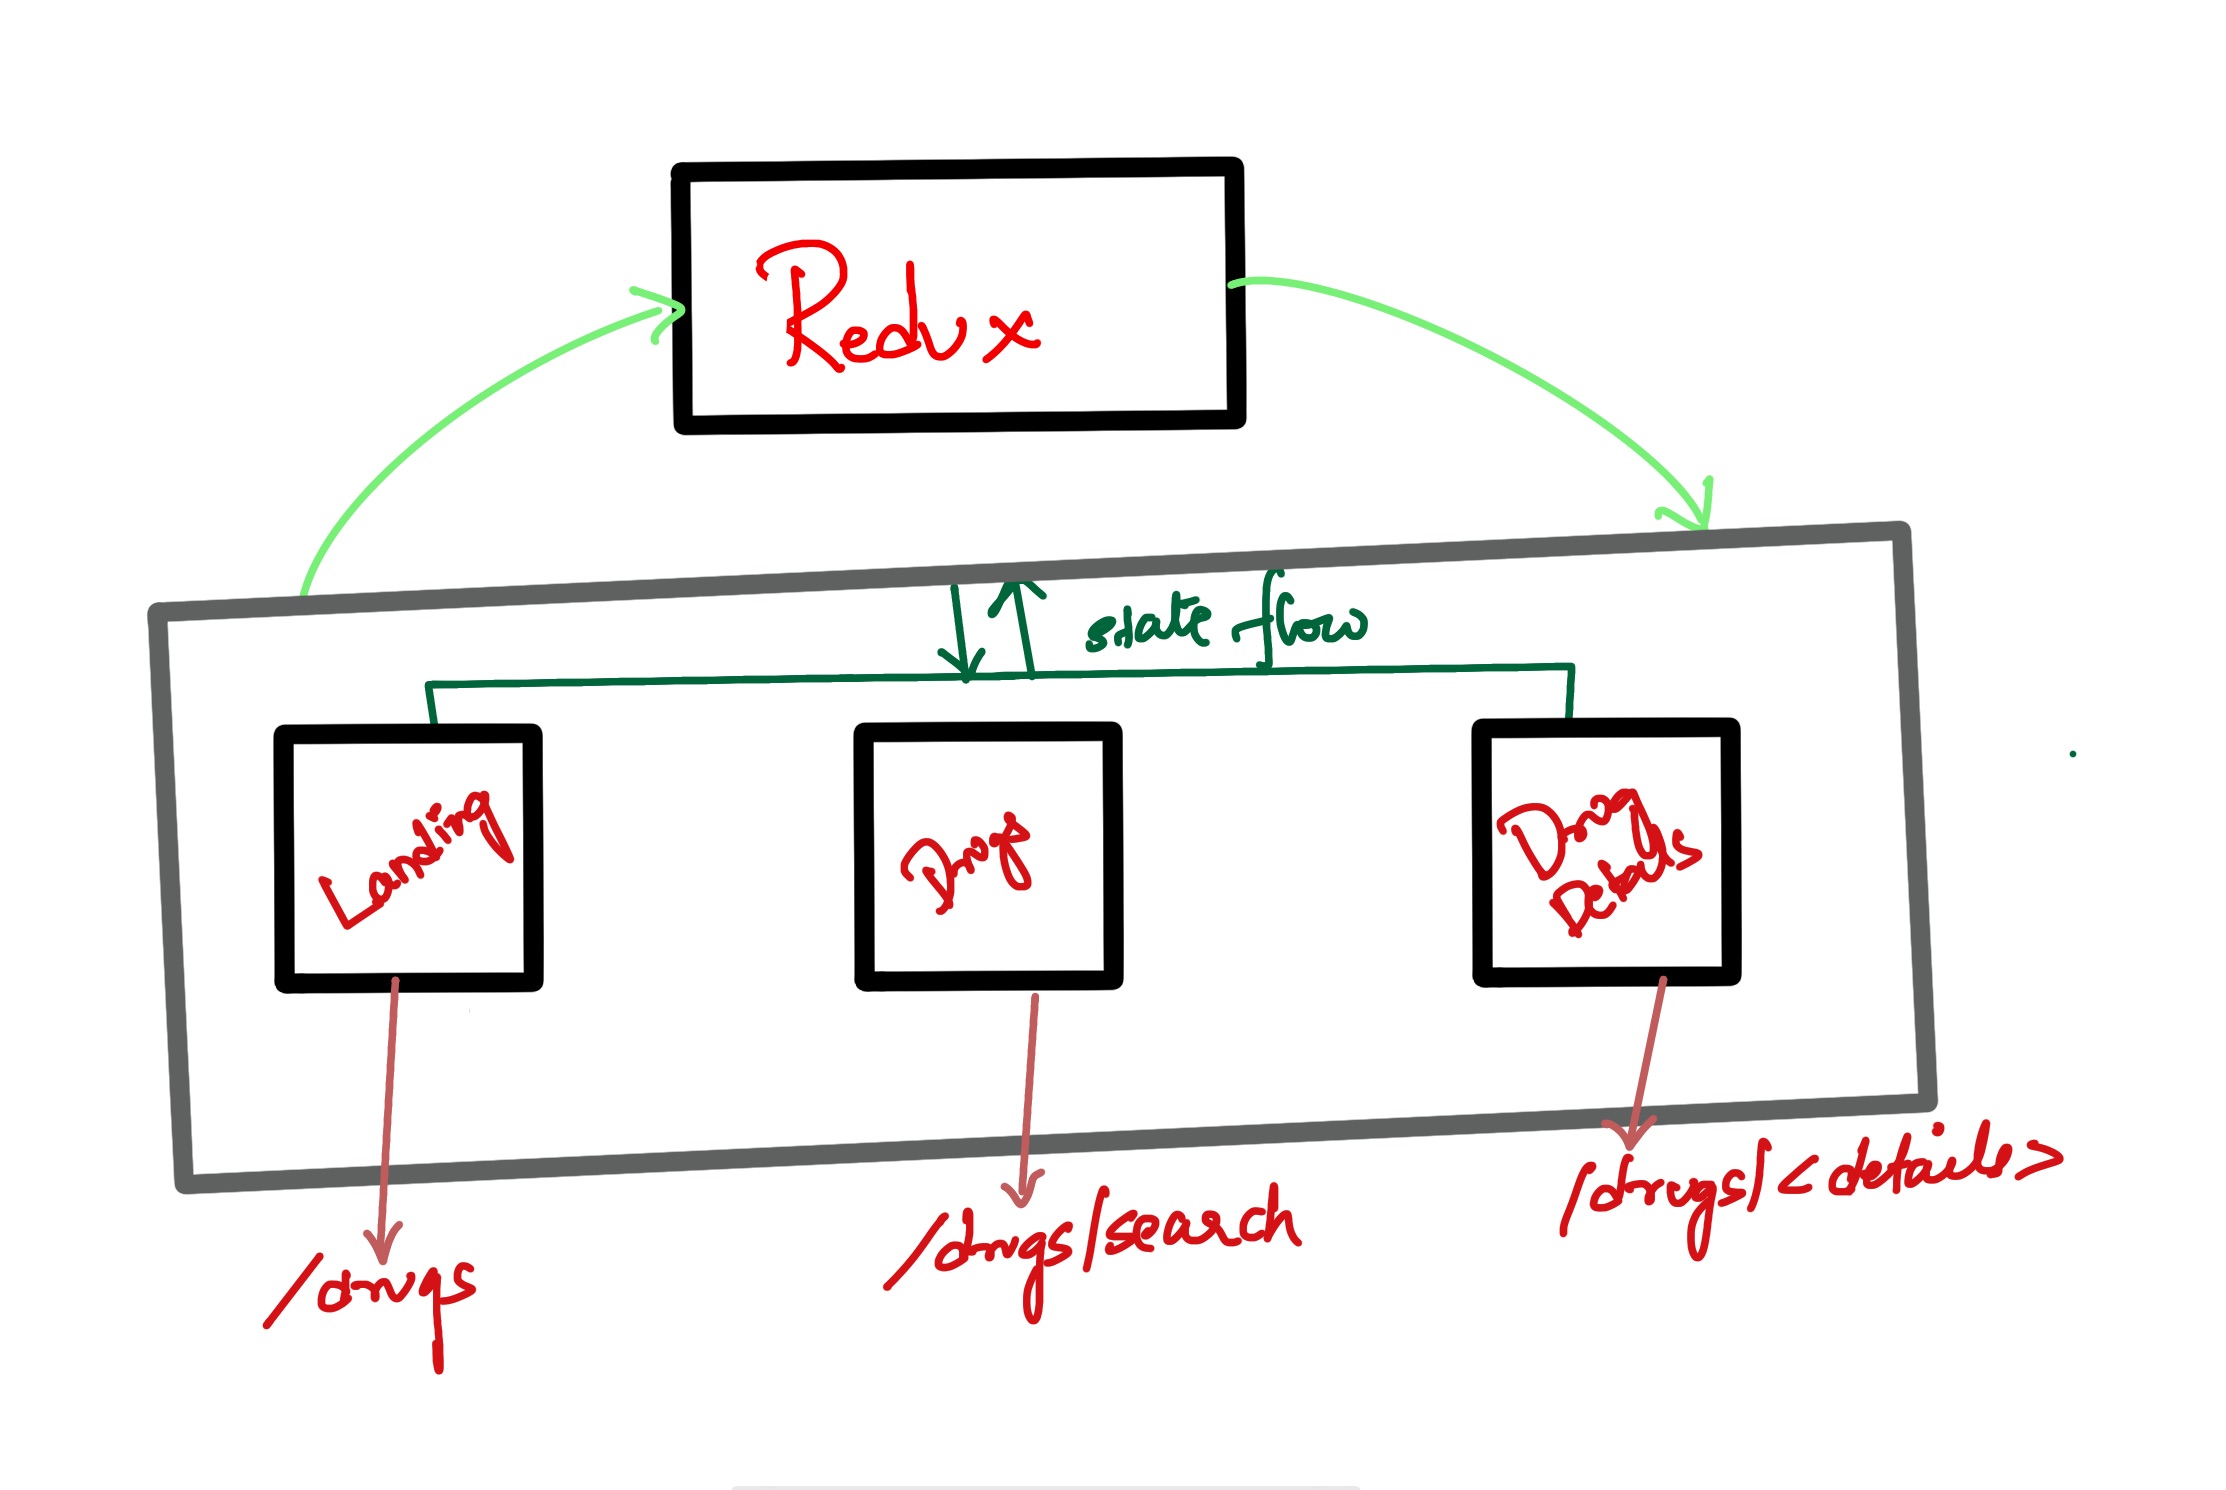 Redux
state flow
Landing
Drug
Drug
Details
/drugs
/drugs/search
/drugs/<details>